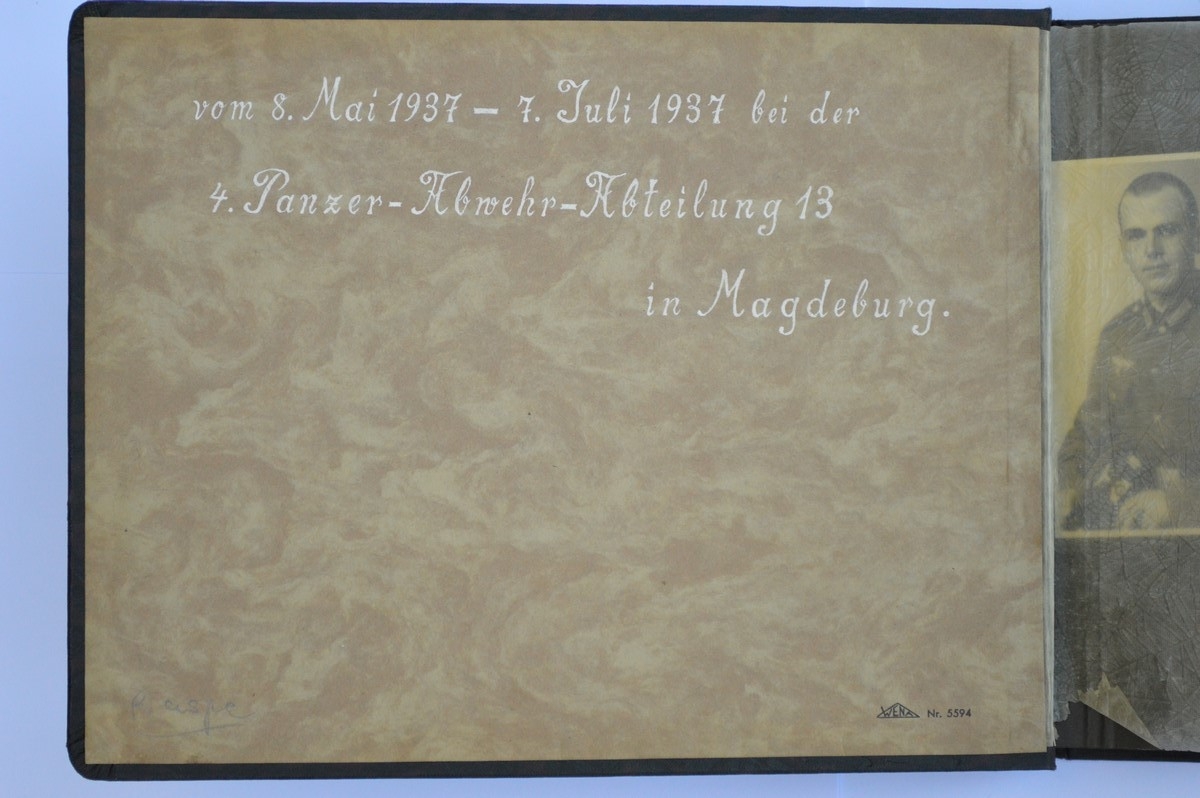 vom 8. Mai 1937 – 7. Juli 1937 bei der
4. Panzer-Abwehr-Abteilung 13
in Magdeburg.
WENA Nr. 5594